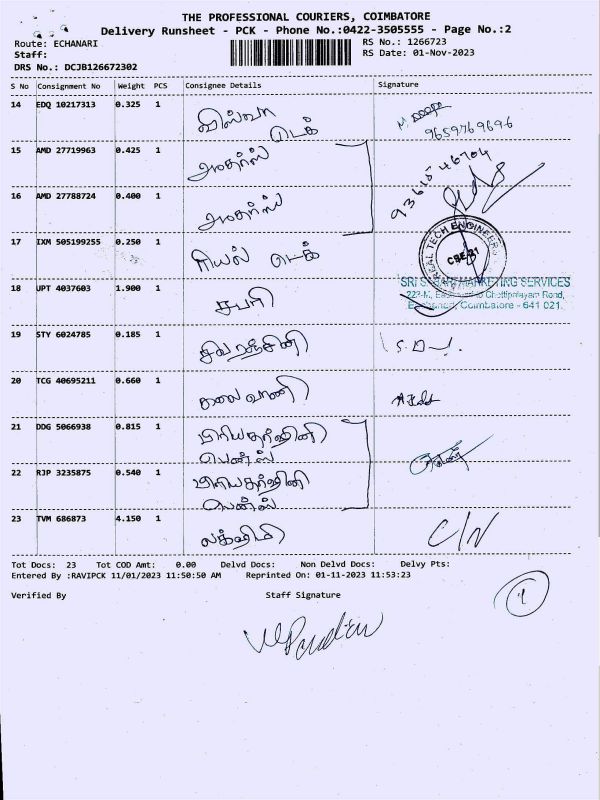 THE PROFESSIONAL COURIERS, COIMBATORE
Delivery Runsheet - PCK - Phone No.:0422-3505555 - Page No.:2
Route: ECHANARI
RS No.: 1266723
Staff:
RS Date: 01-Nov-2023
DRS No.: DCJB126672302
S No Consignment No Weight PCS Consignee Details Signature
14 EDQ 10217313 0.325 1 விஸ்வா
டெக்
9659769696
15 AMD 27719963 0.425 1
93615 46704
16 AMD 27788724 0.400 1
17 IXM 505199255 0.250 1 ரியல் டெக்
REAL TECH ENGINEERS
CBE-21
18 UPT 4037603 1.900 1 சபரி
SRI SABARI MARKETING SERVICES
Coimbatore - 641 021.
19 STY 6024785 0.185 1 சிவரஞ்சினி
20 TCG 40695211 0.660 1 கலைவாணி
21 DDG 5066938 0.815 1 பிரியதர்ஷினி
பென்ஸ்
22 RJP 3235875 0.540 1 பிரியதர்ஷினி
பென்ஸ்
23 TVM 686873 4.150 1 லக்ஷ்மி C/N
Tot Docs: 23 Tot COD Amt: 0.00 Delvd Docs: Non Delvd Docs: Delvy Pts:
Entered By :RAVIPCK 11/01/2023 11:50:50 AM Reprinted On: 01-11-2023 11:53:23
Verified By Staff Signature
1